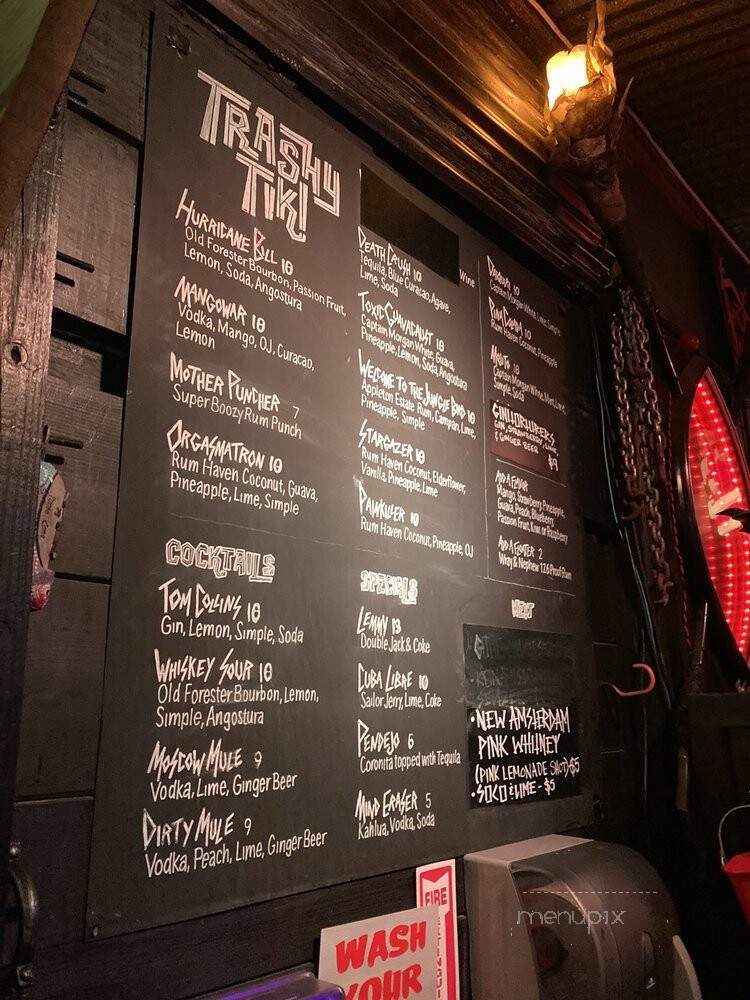 TRASHY
TIKI
HURRICANE BILL 10
Old Forester Bourbon, Passion Fruit,
Lemon, Soda, Angostura
MANGOWAR 10
Vodka, Mango, OJ, Curacao,
Lemon
MOTHER PUNCHER 7
Super Boozy Rum Punch
ORGASMATRON 10
Rum Haven Coconut, Guava,
Pineapple, Lime, Simple
COCKTAILS
TOM COLLINS 10
Gin, Lemon, Simple, Soda
WHISKEY SOUR 10
Old Forester Bourbon, Lemon,
Simple, Angostura
MOSCOW MULE 9
Vodka, Lime, Ginger Beer
DIRTY MULE 9
Vodka, Peach, Lime, Ginger Beer
Wine
DEATH CRUSH 10
Tequila, Blue Curacao, Agave,
Lime, Soda
TOXIC GUAVACAUST 10
Captain Morgan White, Guava,
Pineapple, Lemon, Soda, Angostura
WELCOME TO THE JUNGLE BIRD 10
Appleton Estate Rum, Campari, Lime,
Pineapple, Simple
STARGAZER 10
Rum Haven Coconut, Elderflower,
Vanilla Pineapple, Lime
PAINKILLER 10
Rum Haven Coconut, Pineapple, OJ
SPECIALS
LEMMY 13
Double Jack & Coke
CUBA LIBRE 10
Sailor Jerry, Lime, Coke
PENDEJO 6
Coronita topped with Tequila
MIND ERASER 5
Kahlua, Vodka, Soda
DAIQUIRI 10
Captain Morgan White, Lime, Simple
PINA COLADA 10
Rum Haven Coconut, Pineapple
MOJITO 10
Captain Morgan White, Mint, Lime,
Simple, Soda
GIN, STRAWBERRY, LIME,
& GINGER BEER
$9
ADD A FLAVOR
Mango, Strawberry, Pineapple,
Guava, Peach, Blueberry
Passion Fruit, Kiwi or Raspberry
ADD A FLOATER 2
Wray & Nephew 126 Proof Rum
• NEW AMSTERDAM
PINK WHITNEY
(PINK LEMONADE SHOT) $5
• SOCO & LIME - $5
FIRE
WASH
YOUR
menupix